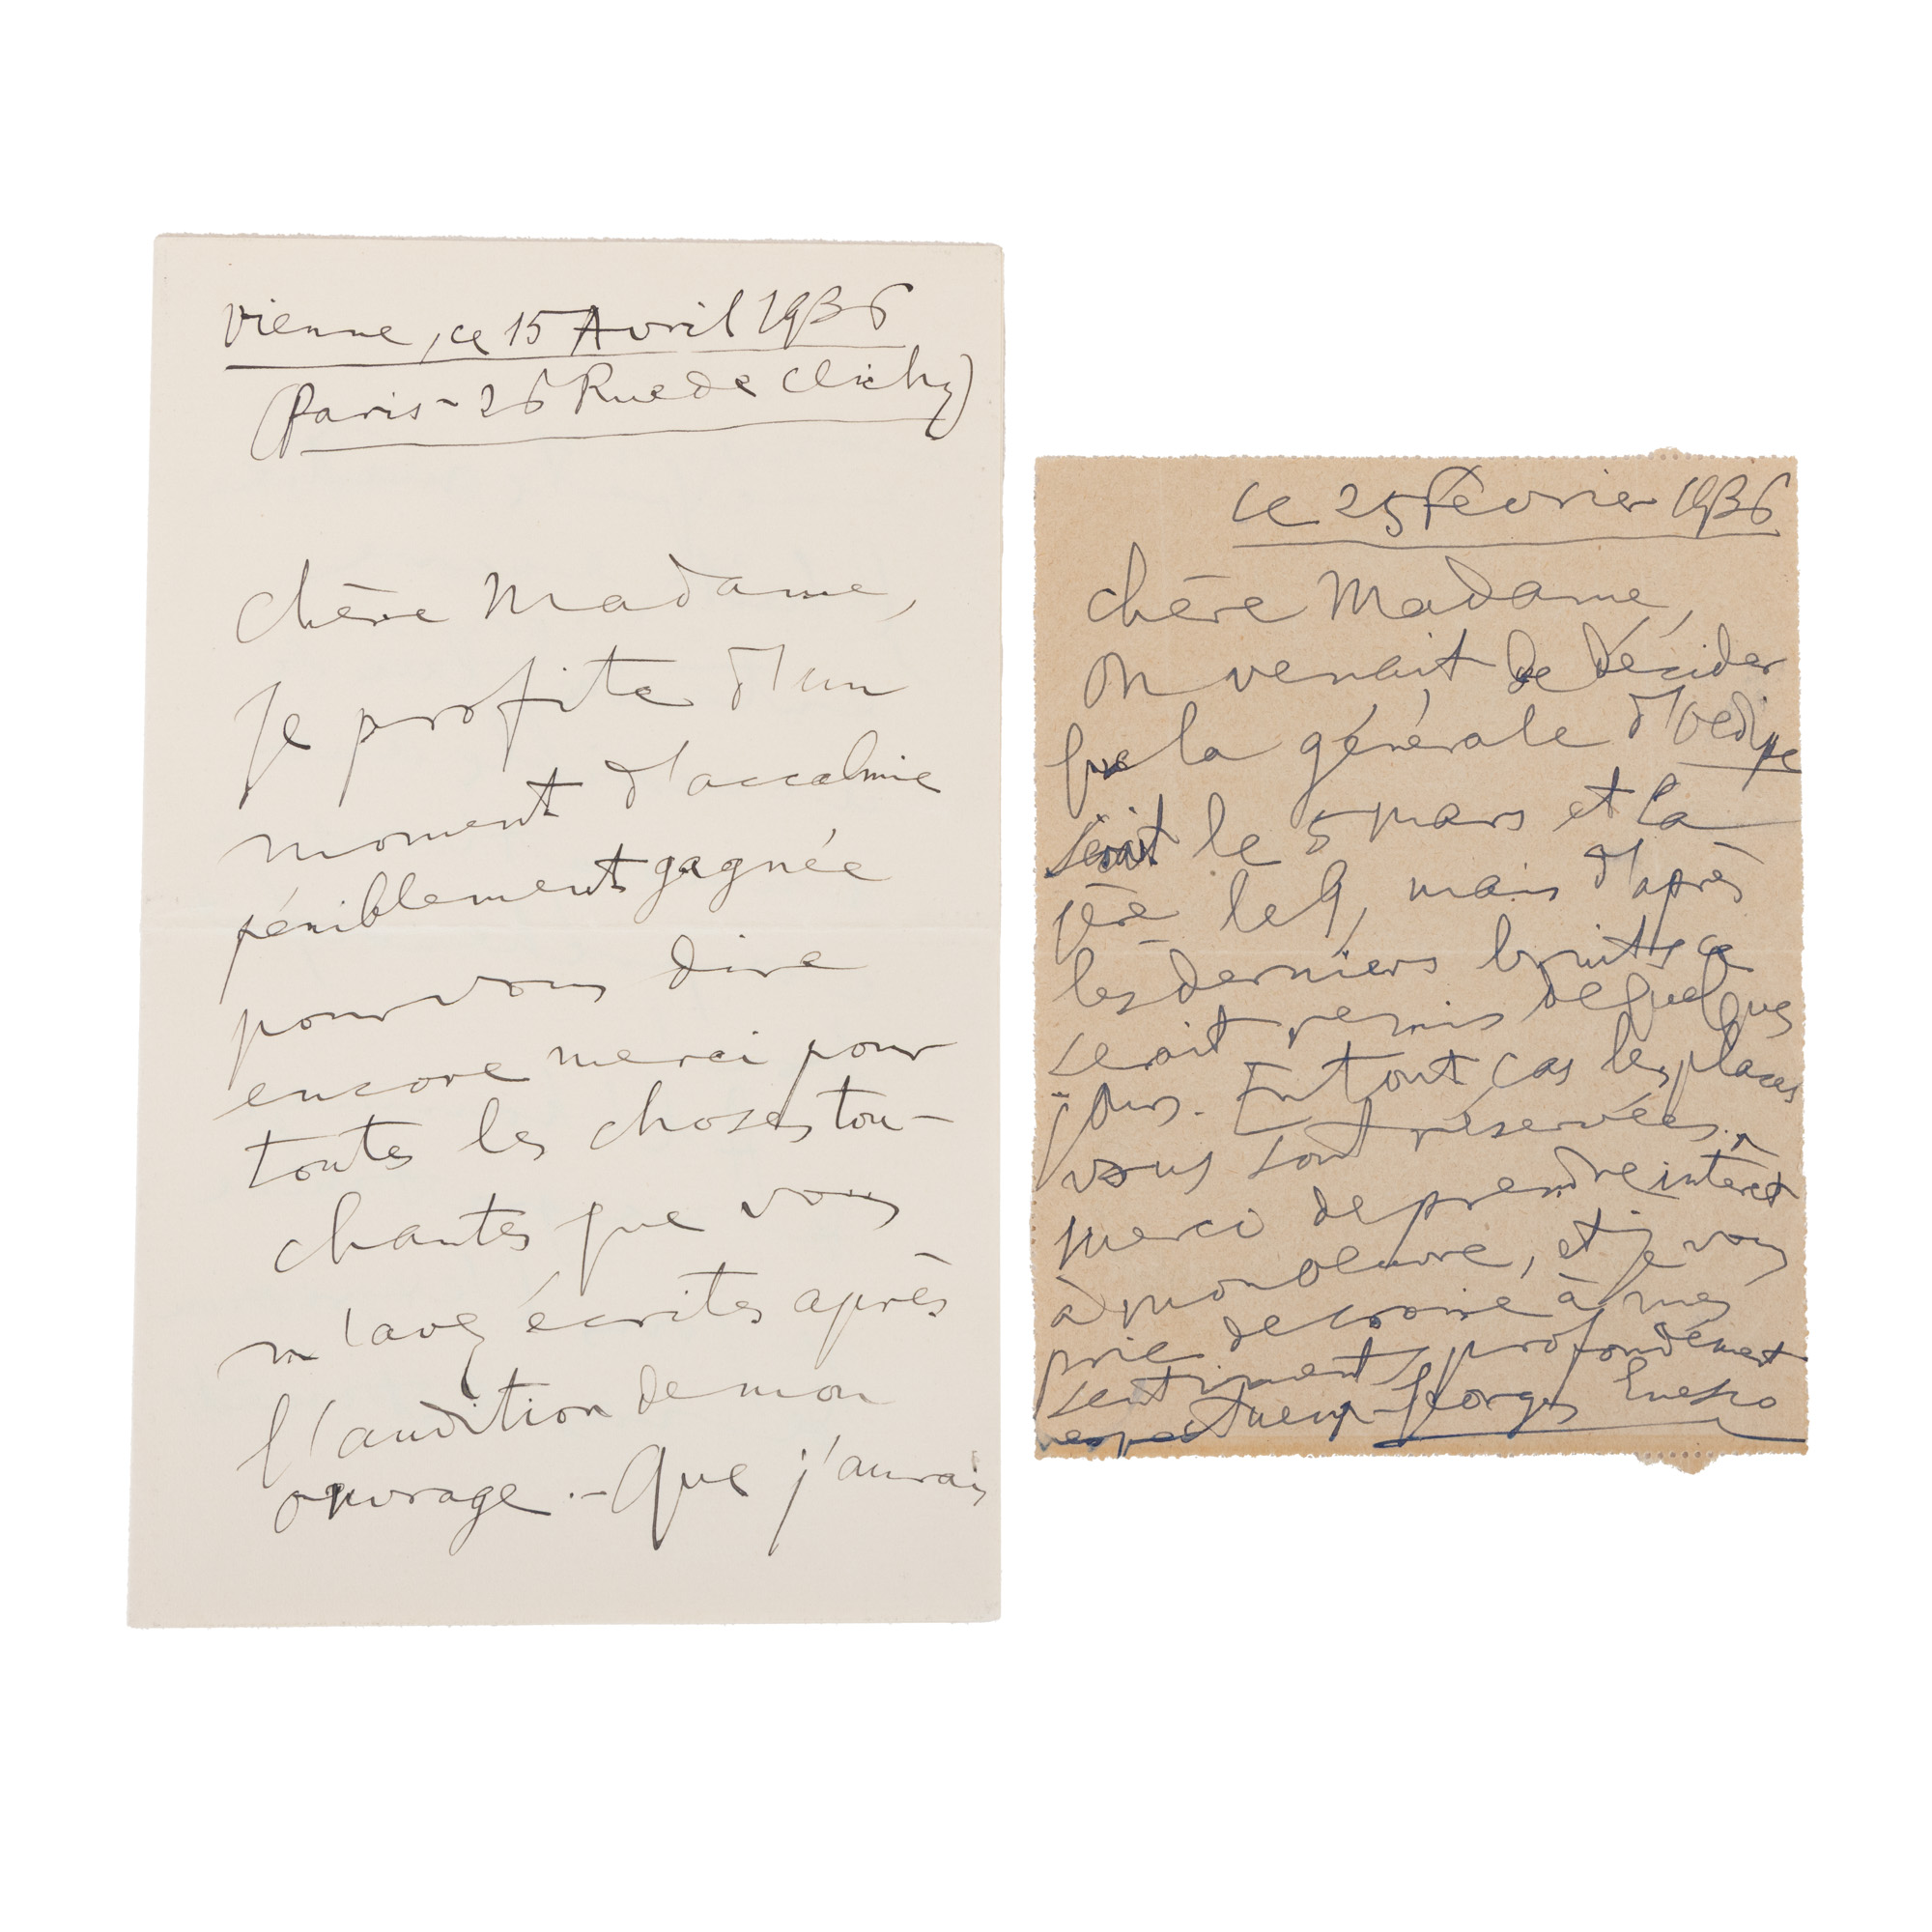 Vienne, ce 15 Avril 1936
(Paris - 26 Rue de Clichy)
Chère Madame,
Je profite d'un
moment d'accalmie
péniblement gagnée
pour vous dire
encore merci pour
toutes les choses tou-
chantes que vous
m'avez écrites après
l'audition de mon
ouvrage. - Que j'aurais
ce 25 Février 1936
Chère Madame,
On venait de décider
que la générale d'Oedipe
serait le 5 mars et la
1ère le 9, mais d'après
les derniers bruits ce
serait remis de quelques
jours. En tout cas les places
vous sont réservées.
Merci de prendre intérêt
à mon oeuvre, et je vous
prie de croire à mes
sentiments profondément
respectueux - Georges Enesco